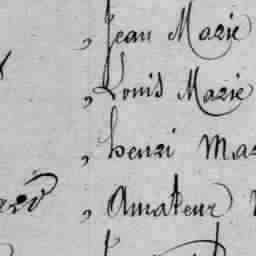 , Jean Marie
, Louis Marie
, henri
, Amateur